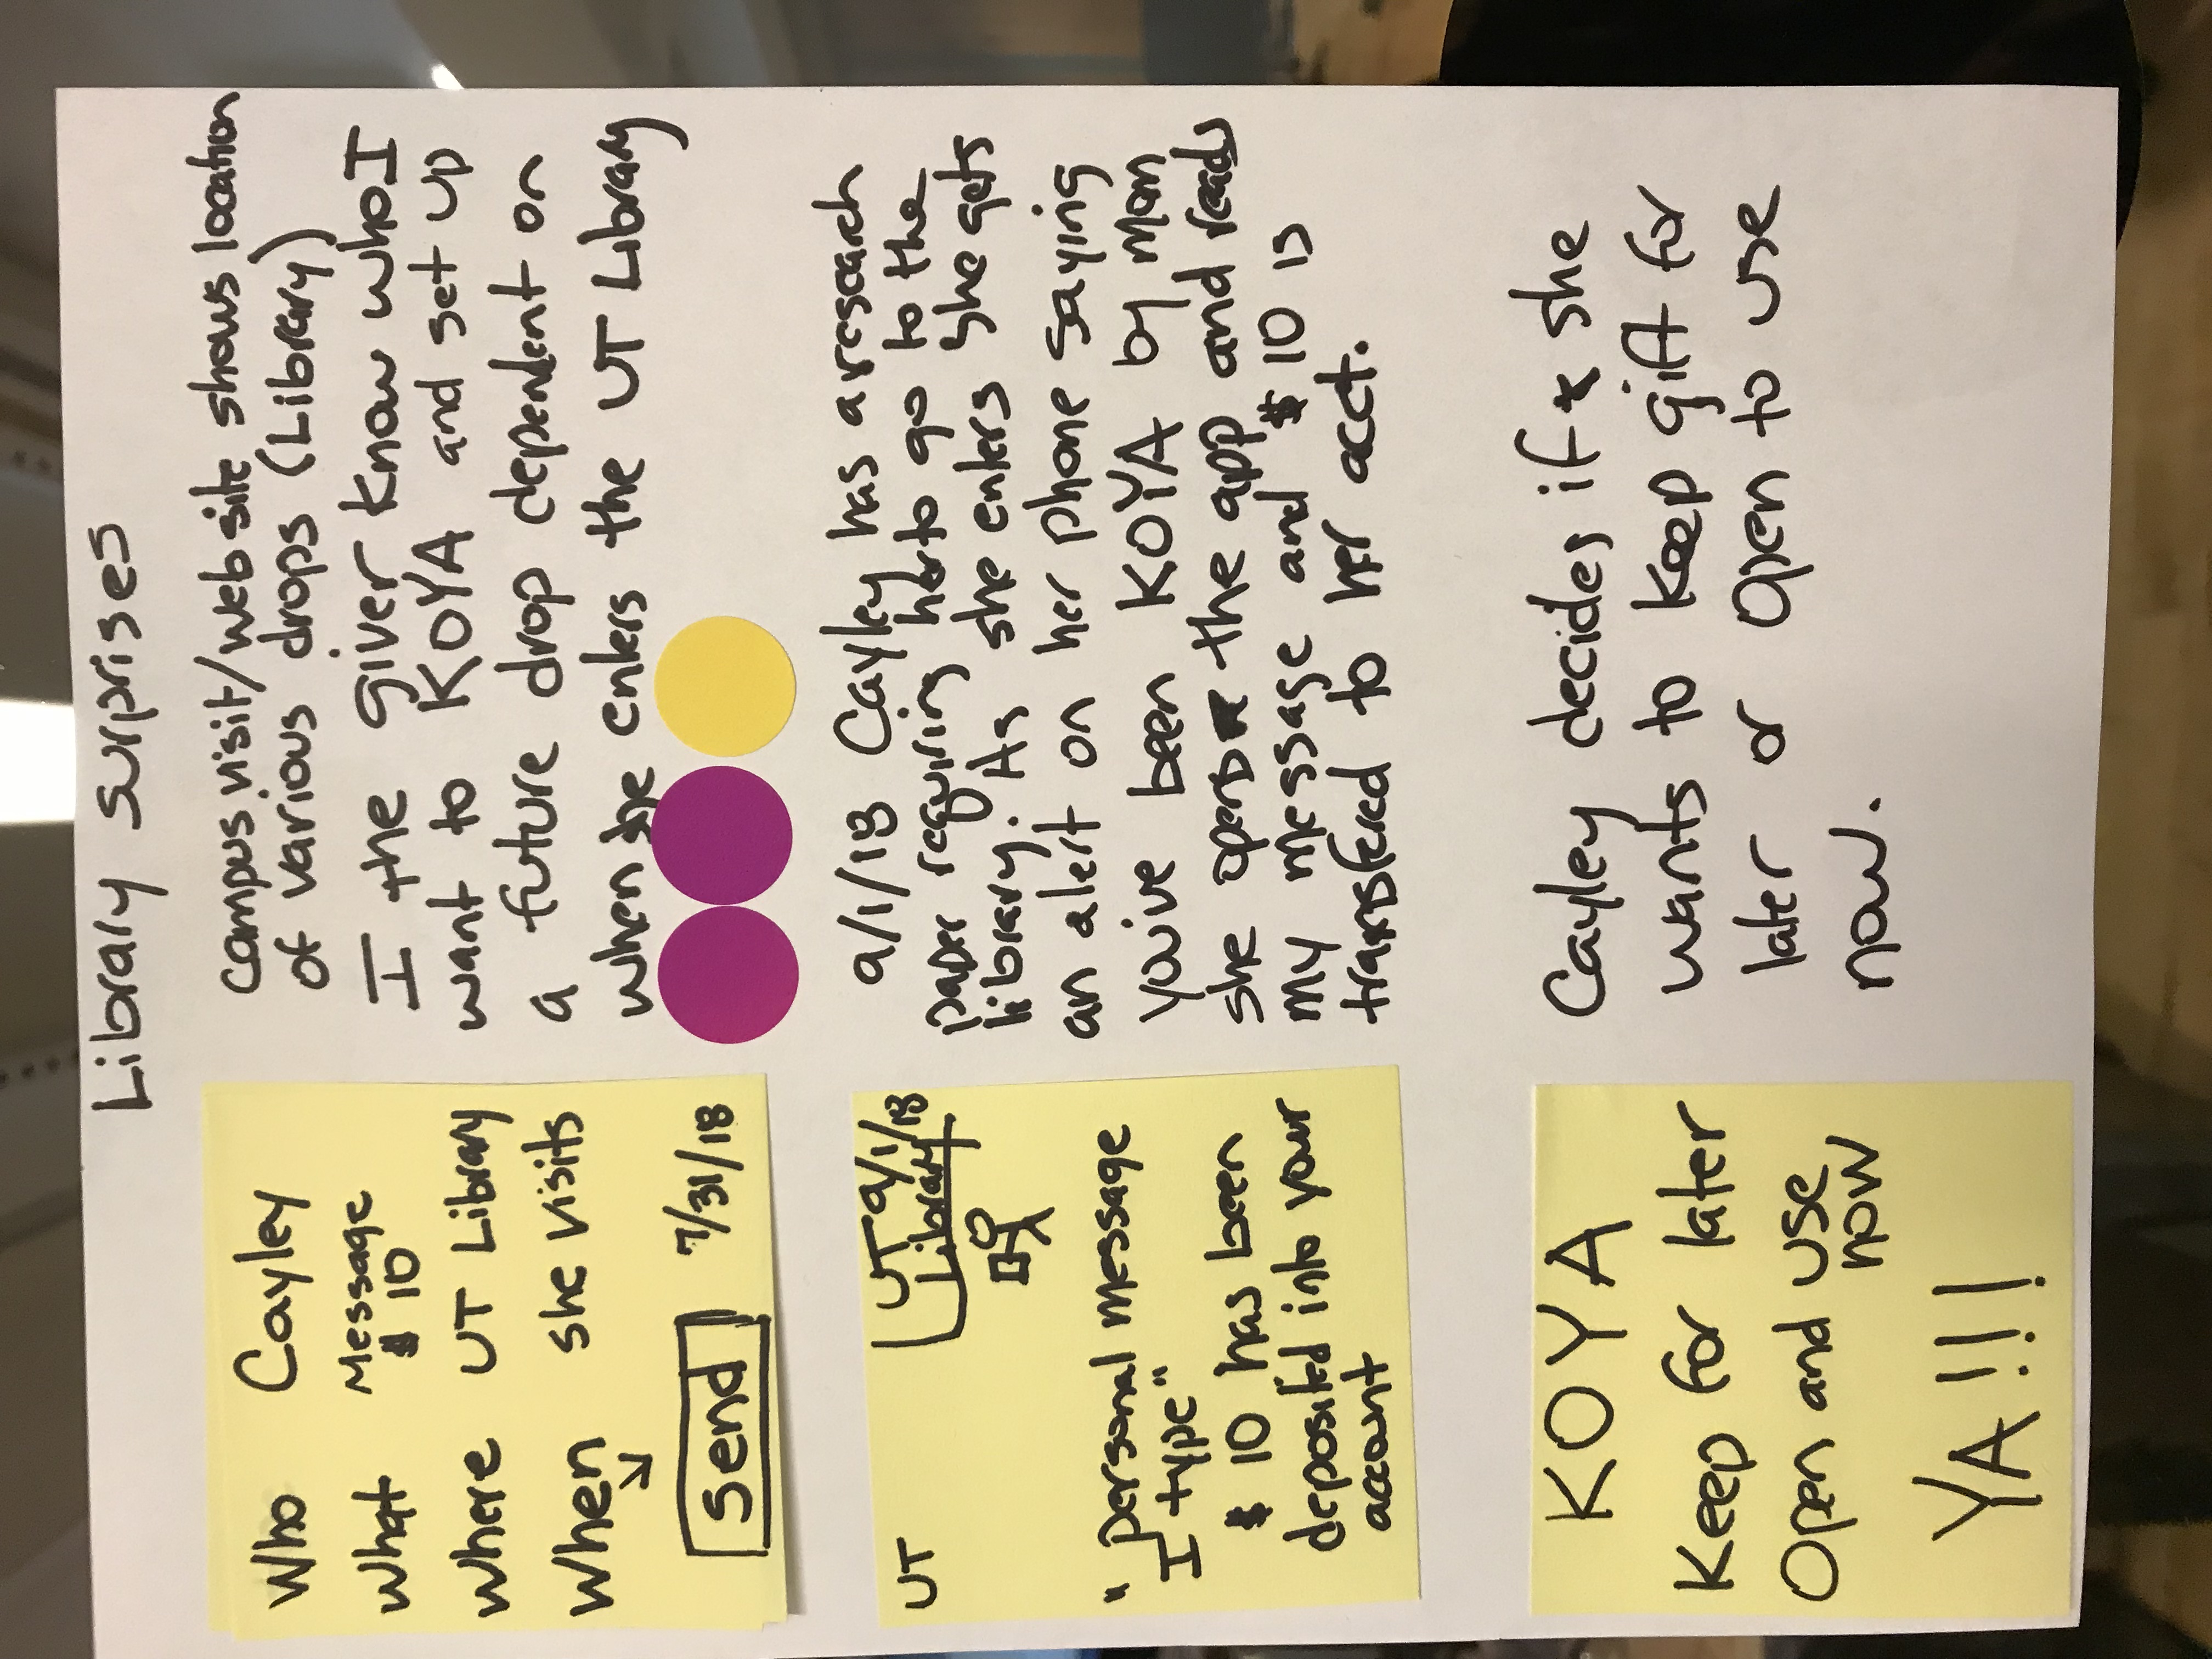 Library surprises
Who Cayley
What Message
$ 10
Where UT Library
When she visits
Send 7/31/18
campus visit/website shows location
of various drops (Library)
I the giver know who I
want to KOYA and set up
a future drop dependent on
when she enters the UT Library
UT UT 9/1/18
Library
"personal message
I type"
$ 10 has been
deposited into your
account
9/1/18 Cayley has a research
paper requiring her to go to the
library. As she enters she gets
an alert on her phone saying
you've been KOYA by mom
she opens the app and reads
my message and $10 is
transfered to her acct.
KOYA
Keep for later
Open and use
now
YA!!!
Cayley decides if she
wants to keep gift for
later or open to use
now.